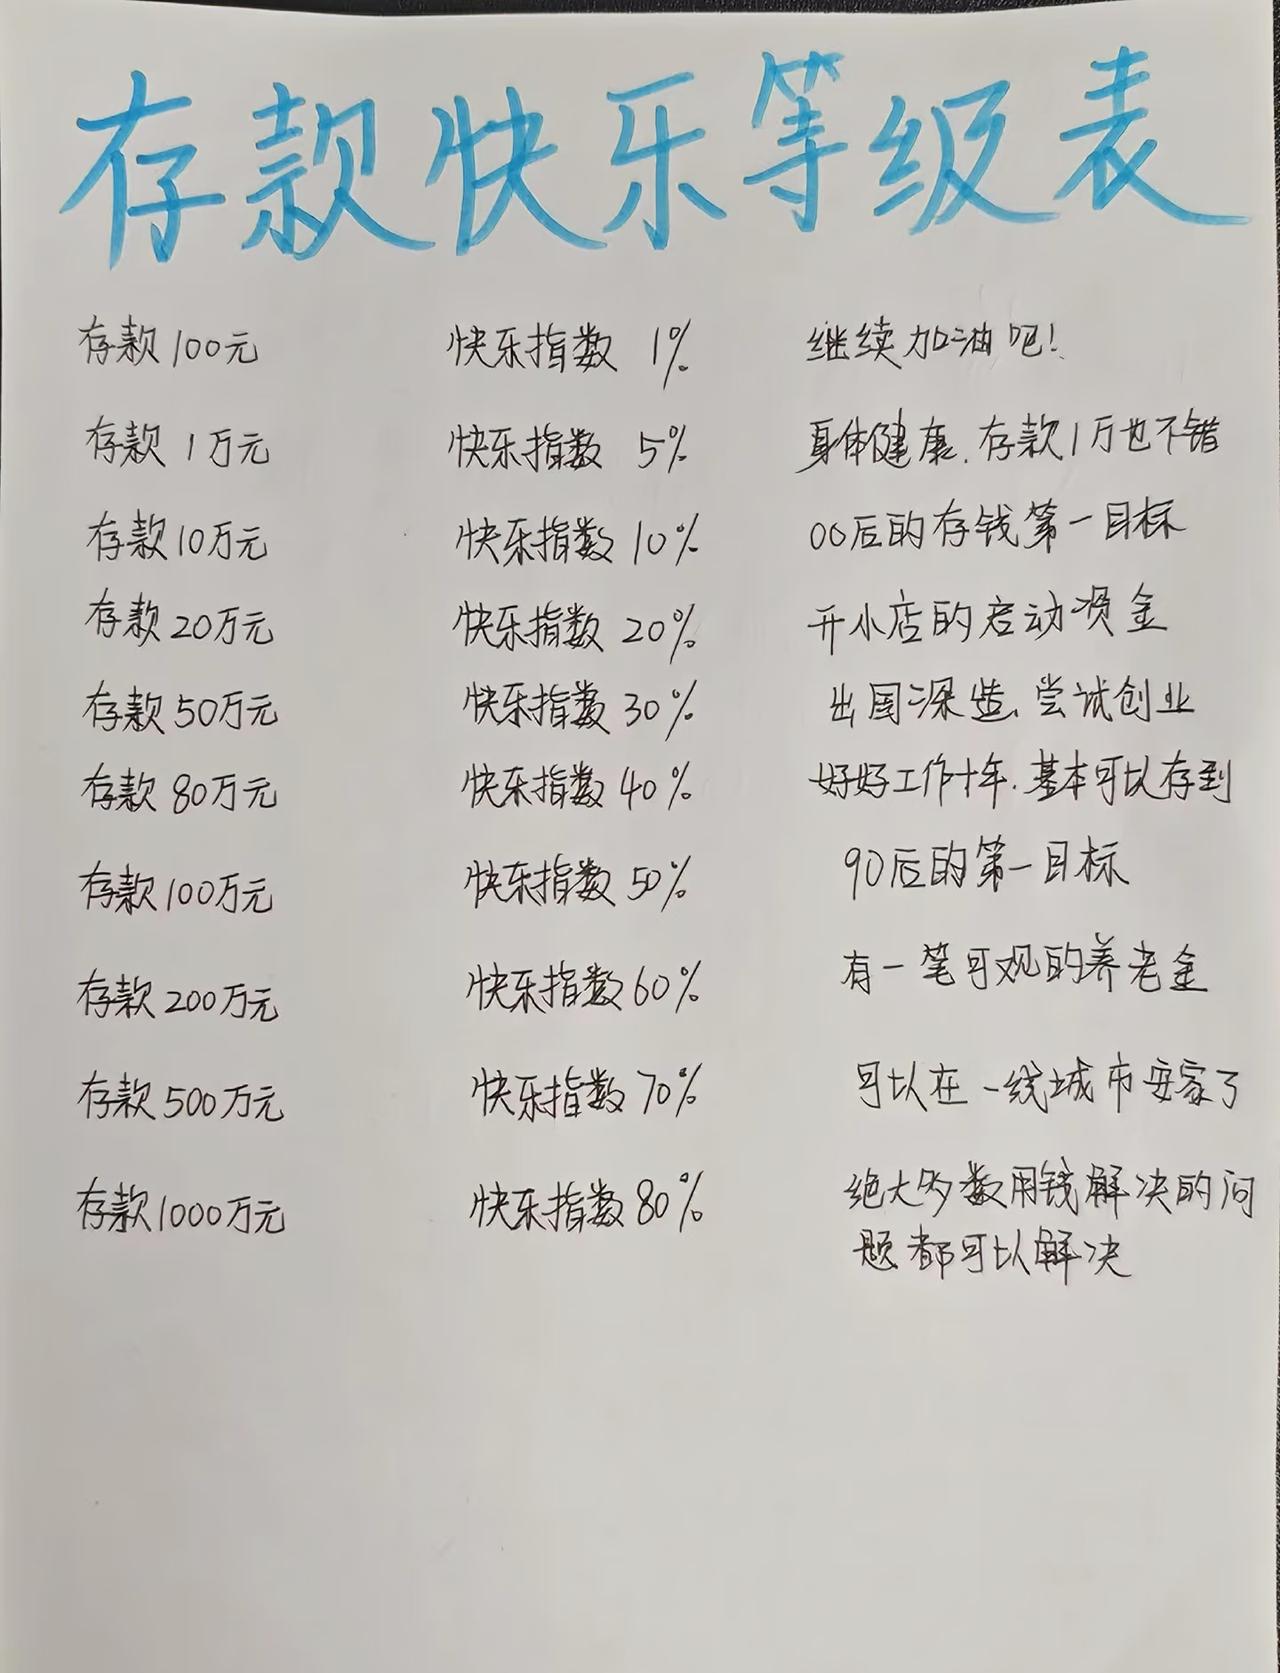 存款快乐等级表
存款100元 快乐指数 1% 继续加油吧!
存款1万元 快乐指数 5% 身体健康、存款1万也不错
存款10万元 快乐指数 10% 00后的存钱第一目标
存款20万元 快乐指数 20% 开小店的启动资金
存款50万元 快乐指数 30% 出国深造、尝试创业
存款80万元 快乐指数 40% 好好工作十年.基本可以存到
存款100万元 快乐指数 50% 90后的第一目标
存款200万元 快乐指数 60% 有一笔可观的养老金
存款500万元 快乐指数 70% 可以在一线城市安家了
存款1000万元 快乐指数 80% 绝大多数用钱解决的问
题都可以解决